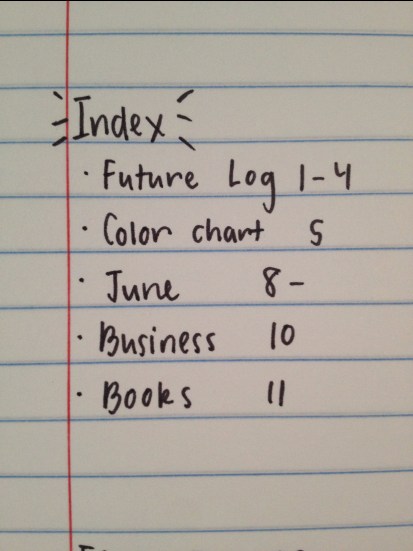 Index
· Future Log 1-4
· Color chart 5
· June 8-
· Business 10
· Books 11